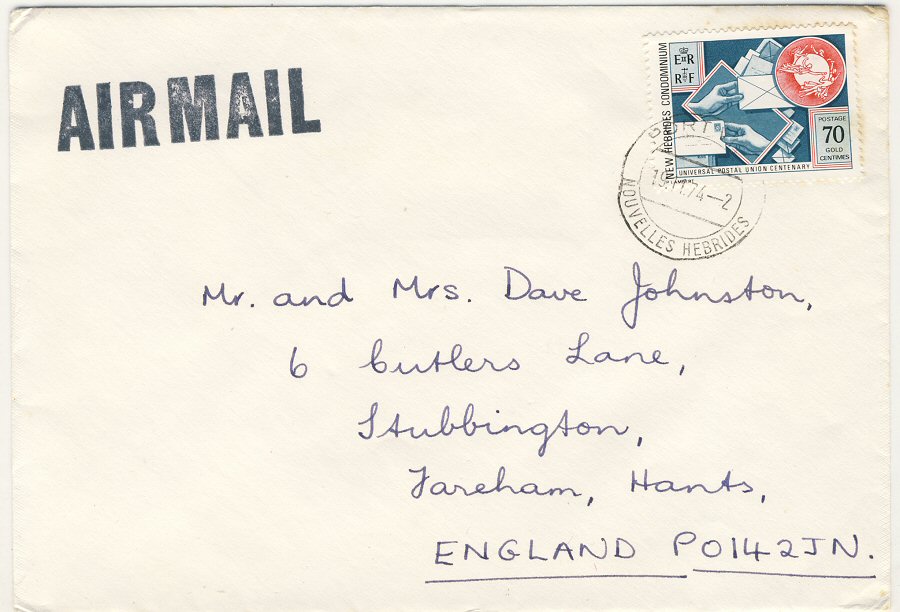 AIRMAIL
NEW HEBRIDES CONDOMINIUM
E II R
R F
POSTAGE
70
GOLD
CENTIMES
UNIVERSAL POSTAL UNION CENTENARY
NOUVELLES HEBRIDES
Mr. and Mrs. Dave Johnston,
6 Cutlers Lane,
Stubbington,
Fareham, Hants,
ENGLAND PO142JN.